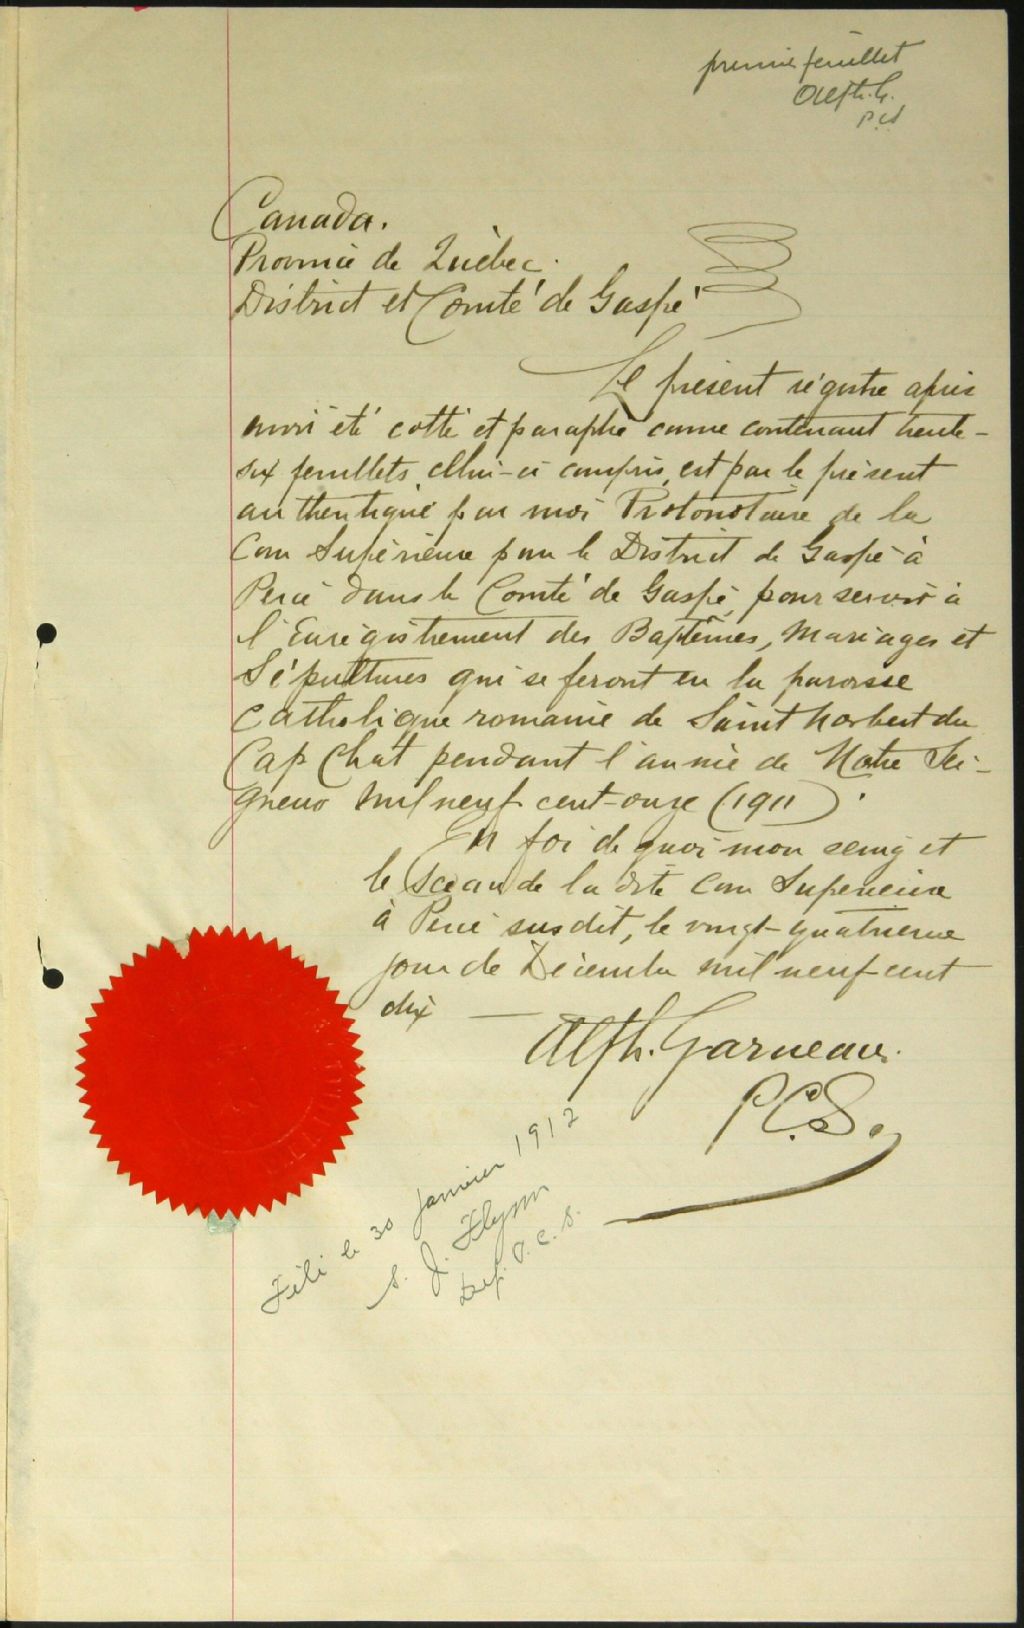 premier feuillet
Alph. G.
P.C.S
Canada.
Province de Québec.
District et Comté de Gaspé
Le présent régistre après
avoir été cotté et paraphé comme contenant trente-
six feuillets, celui-ci compris, est par le présent
authentiqué par moi Protonotaire de la
Cour Supérieure pour le District de Gaspé à
Percé dans le Comté de Gaspé, pour servir à
l'Enrégistrement des Baptêmes, Mariages et
Sépultures qui se feront en la paroisse
Catholique romaine de Saint Norbert du
Cap Chat pendant l'année de Notre Sei-
gneur mil neuf cent-onze (1911).
En foi de quoi mon seing et
le Sceau de la dite Cour Superieure
à Percé susdit, le vingt-quatrieme
jour de Décembre mil neuf cent
dix —
Alph. Garneau.
P.C.S.
Filé le 30 janvier 1912
S. J. Flynn
Dep. P.C.S.